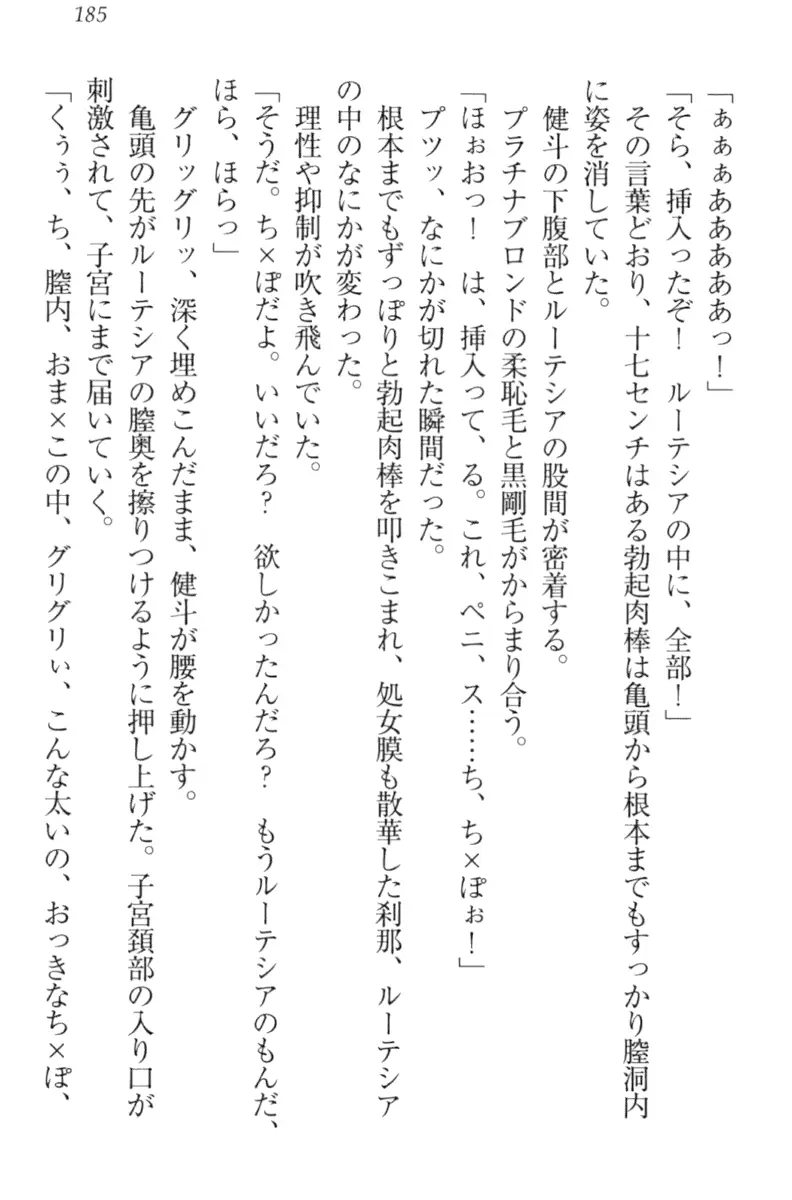 185
「ぁぁぁあああああっ！」
「そら、挿入ったぞ！　ルーテシアの中に、全部！」
その言葉どおり、十七センチはある勃起肉棒は亀頭から根本までもすっかり膣洞内
に姿を消していた。
健斗の下腹部とルーテシアの股間が密着する。
プラチナブロンドの柔恥毛と黒剛毛がからまり合う。
「ほぉおっ！　は、挿入って、る。これ、ペニ、ス……ち、ち×ぽぉ！」
プツッ、なにかが切れた瞬間だった。
根本までもずっぽりと勃起肉棒を叩きこまれ、処女膜も散華した刹那、ルーテシア
の中のなにかが変わった。
理性や抑制が吹き飛んでいた。
「そうだ。ち×ぽだよ。いいだろ？　欲しかったんだろ？　もうルーテシアのもんだ、
ほら、ほらっ」
グリッグリッ、深く埋めこんだまま、健斗が腰を動かす。
亀頭の先がルーテシアの膣奥を擦りつけるように押し上げた。子宮頚部の入り口が
刺激されて、子宮にまで届いていく。
「くぅぅ、ち、膣内、おま×この中、グリグリぃ、こんな太いの、おっきなち×ぽ、